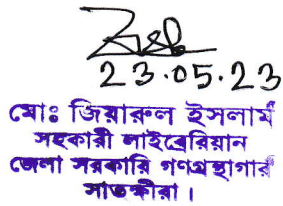 23.05.23
মোঃ জিয়ারুল ইসলাম
সহকারী লাইব্রেরিয়ান
জেলা সরকারি গণগ্রন্থাগার
সাতক্ষীরা।